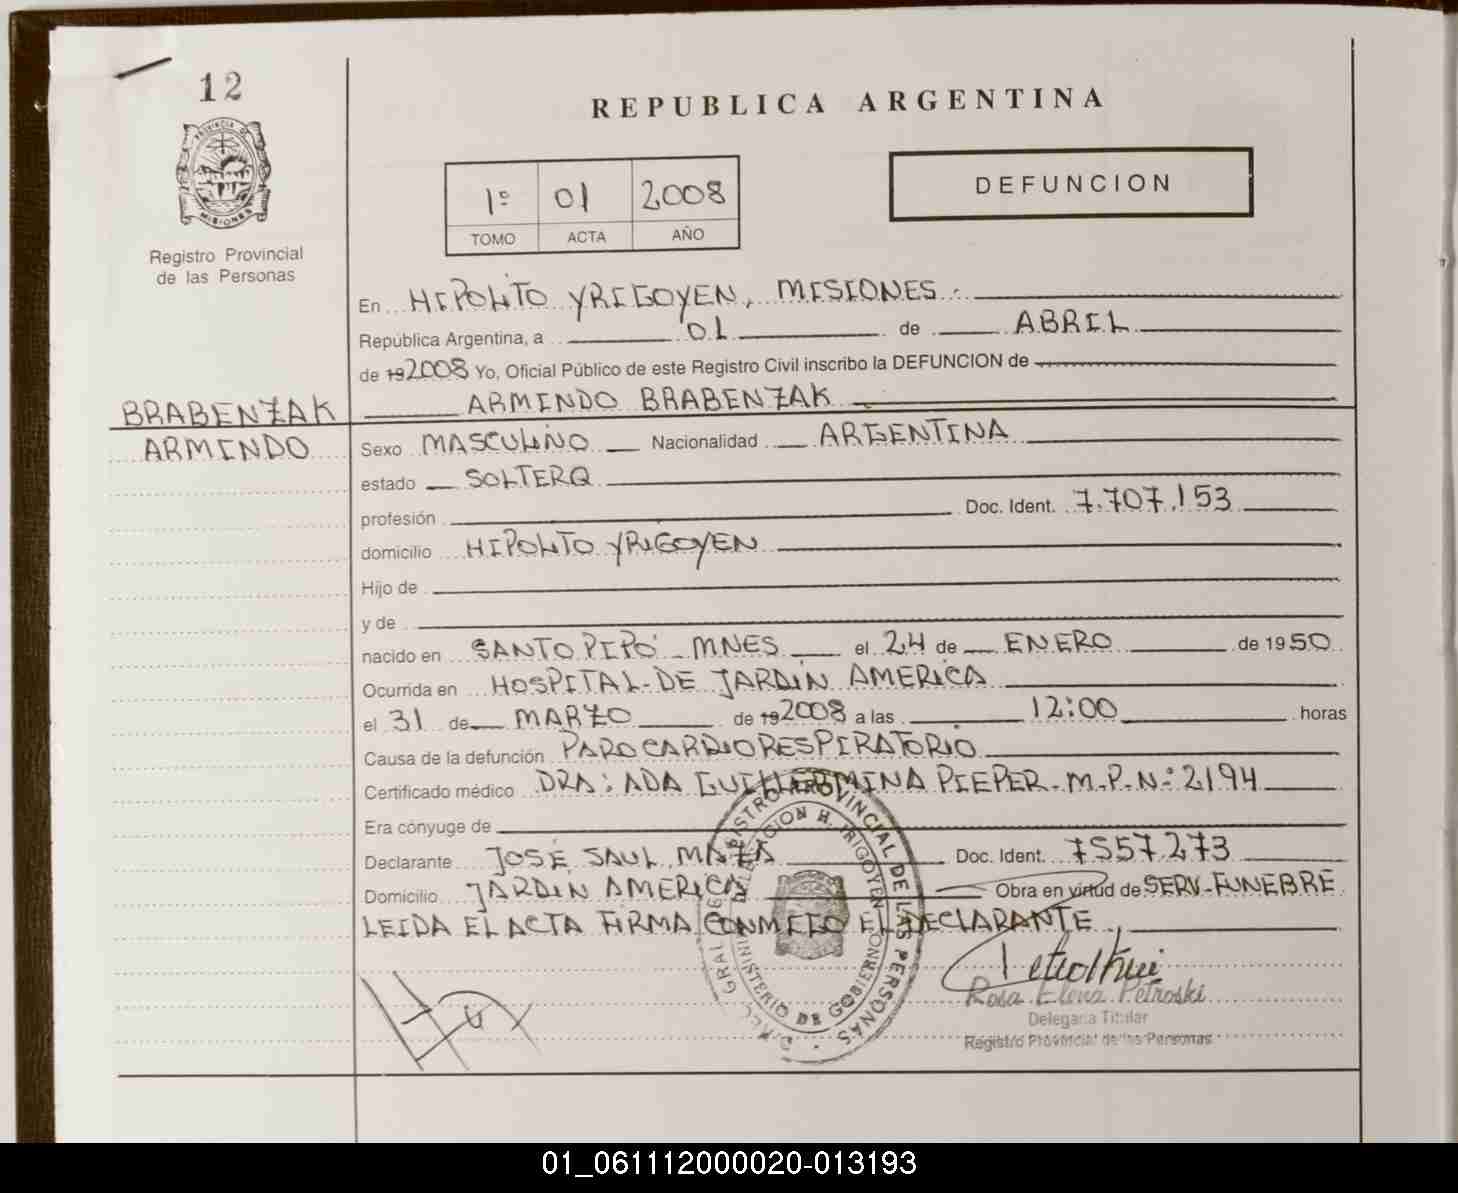 12
PROVINCIA DE
MISIONES
Registro Provincial
de las Personas
REPUBLICA ARGENTINA
1º 01 2008
TOMO ACTA AÑO
DEFUNCION
En HIPOLITO YRIGOYEN, MISIONES.
República Argentina, a 01 de ABRIL
de 192008 Yo, Oficial Público de este Registro Civil inscribo la DEFUNCION de
BRABENZAK ARMINDO BRABENZAK
ARMINDO
Sexo MASCULINO Nacionalidad ARGENTINA
estado SOLTERO
profesión Doc. Ident. 7.707.153
domicilio HIPOLITO YRIGOYEN
Hijo de
y de
nacido en SANTO PIPÓ - MNES el 24 de ENERO de 1950
Ocurrida en HOSPITAL-DE JARDIN AMERICA
el 31 de MARZO de 192008 a las 12:00 horas
Causa de la defunción PARO CARDIORESPIRATORIO
Certificado médico DRA: ADA GUILLERMINA PIEPER - M.P.N.: 2194
Era cónyuge de
Declarante JOSÉ SAUL MAZA Doc. Ident. 7557273
Domicilio JARDIN AMERICA Obra en virtud de SERV-FUNEBRE
LEIDA EL ACTA FIRMA CONMIGO EL DECLARANTE
DIREC. GRAL. REGISTRO PROVINCIAL DE LAS PERSONAS
DELEGACION H. IRIGOYEN
MINISTERIO DE GOBIERNO
Rosa Elena Petroski
Delegada Titular
Registro Provincial de las Personas
01_061112000020-013193